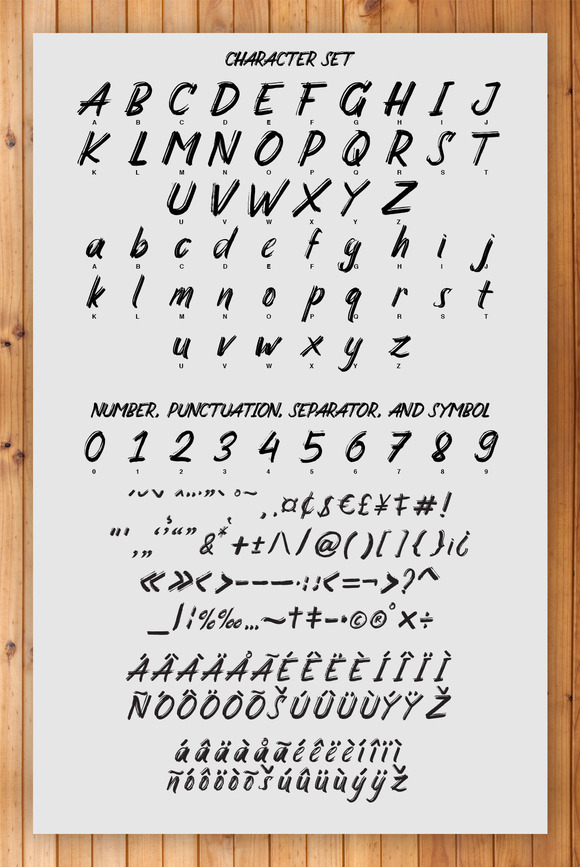 CHARACTER SET
A B C D E F G H I J
A B C D E F G H I J
K L M N O P Q R S T
K L M N O P Q R S T
U V W X Y Z
U V W X Y Z
a b c d e f g h i j
A B C D E F G H I J
k l m n o p q r s t
K L M N O P Q R S T
u v w x y z
U V W X Y Z
NUMBER, PUNCTUATION, SEPARATOR, AND SYMBOL
0 1 2 3 4 5 6 7 8 9
0 1 2 3 4 5 6 7 8 9
¤ ¢ $ € £ ¥ ‡ # !
& * + ± / \ / @ ( ) [ ] { } ¡ ¿
« » < > - – — - · : ; < = ¬ > ? ^
_ | ¦ % ‰ … ~ † ‡ – • © ® ° × ÷
Á Â À Ä Å Ã É Ê Ë È Í Î Ï Ì
Ñ Ó Ô Ö Ò Õ Š Ú Û Ü Ù Ý Ÿ Ž
á â ä à å ã é ê ë è í î ï ì
ñ ó ô ö ò õ š ú û ü ù ý ÿ ž